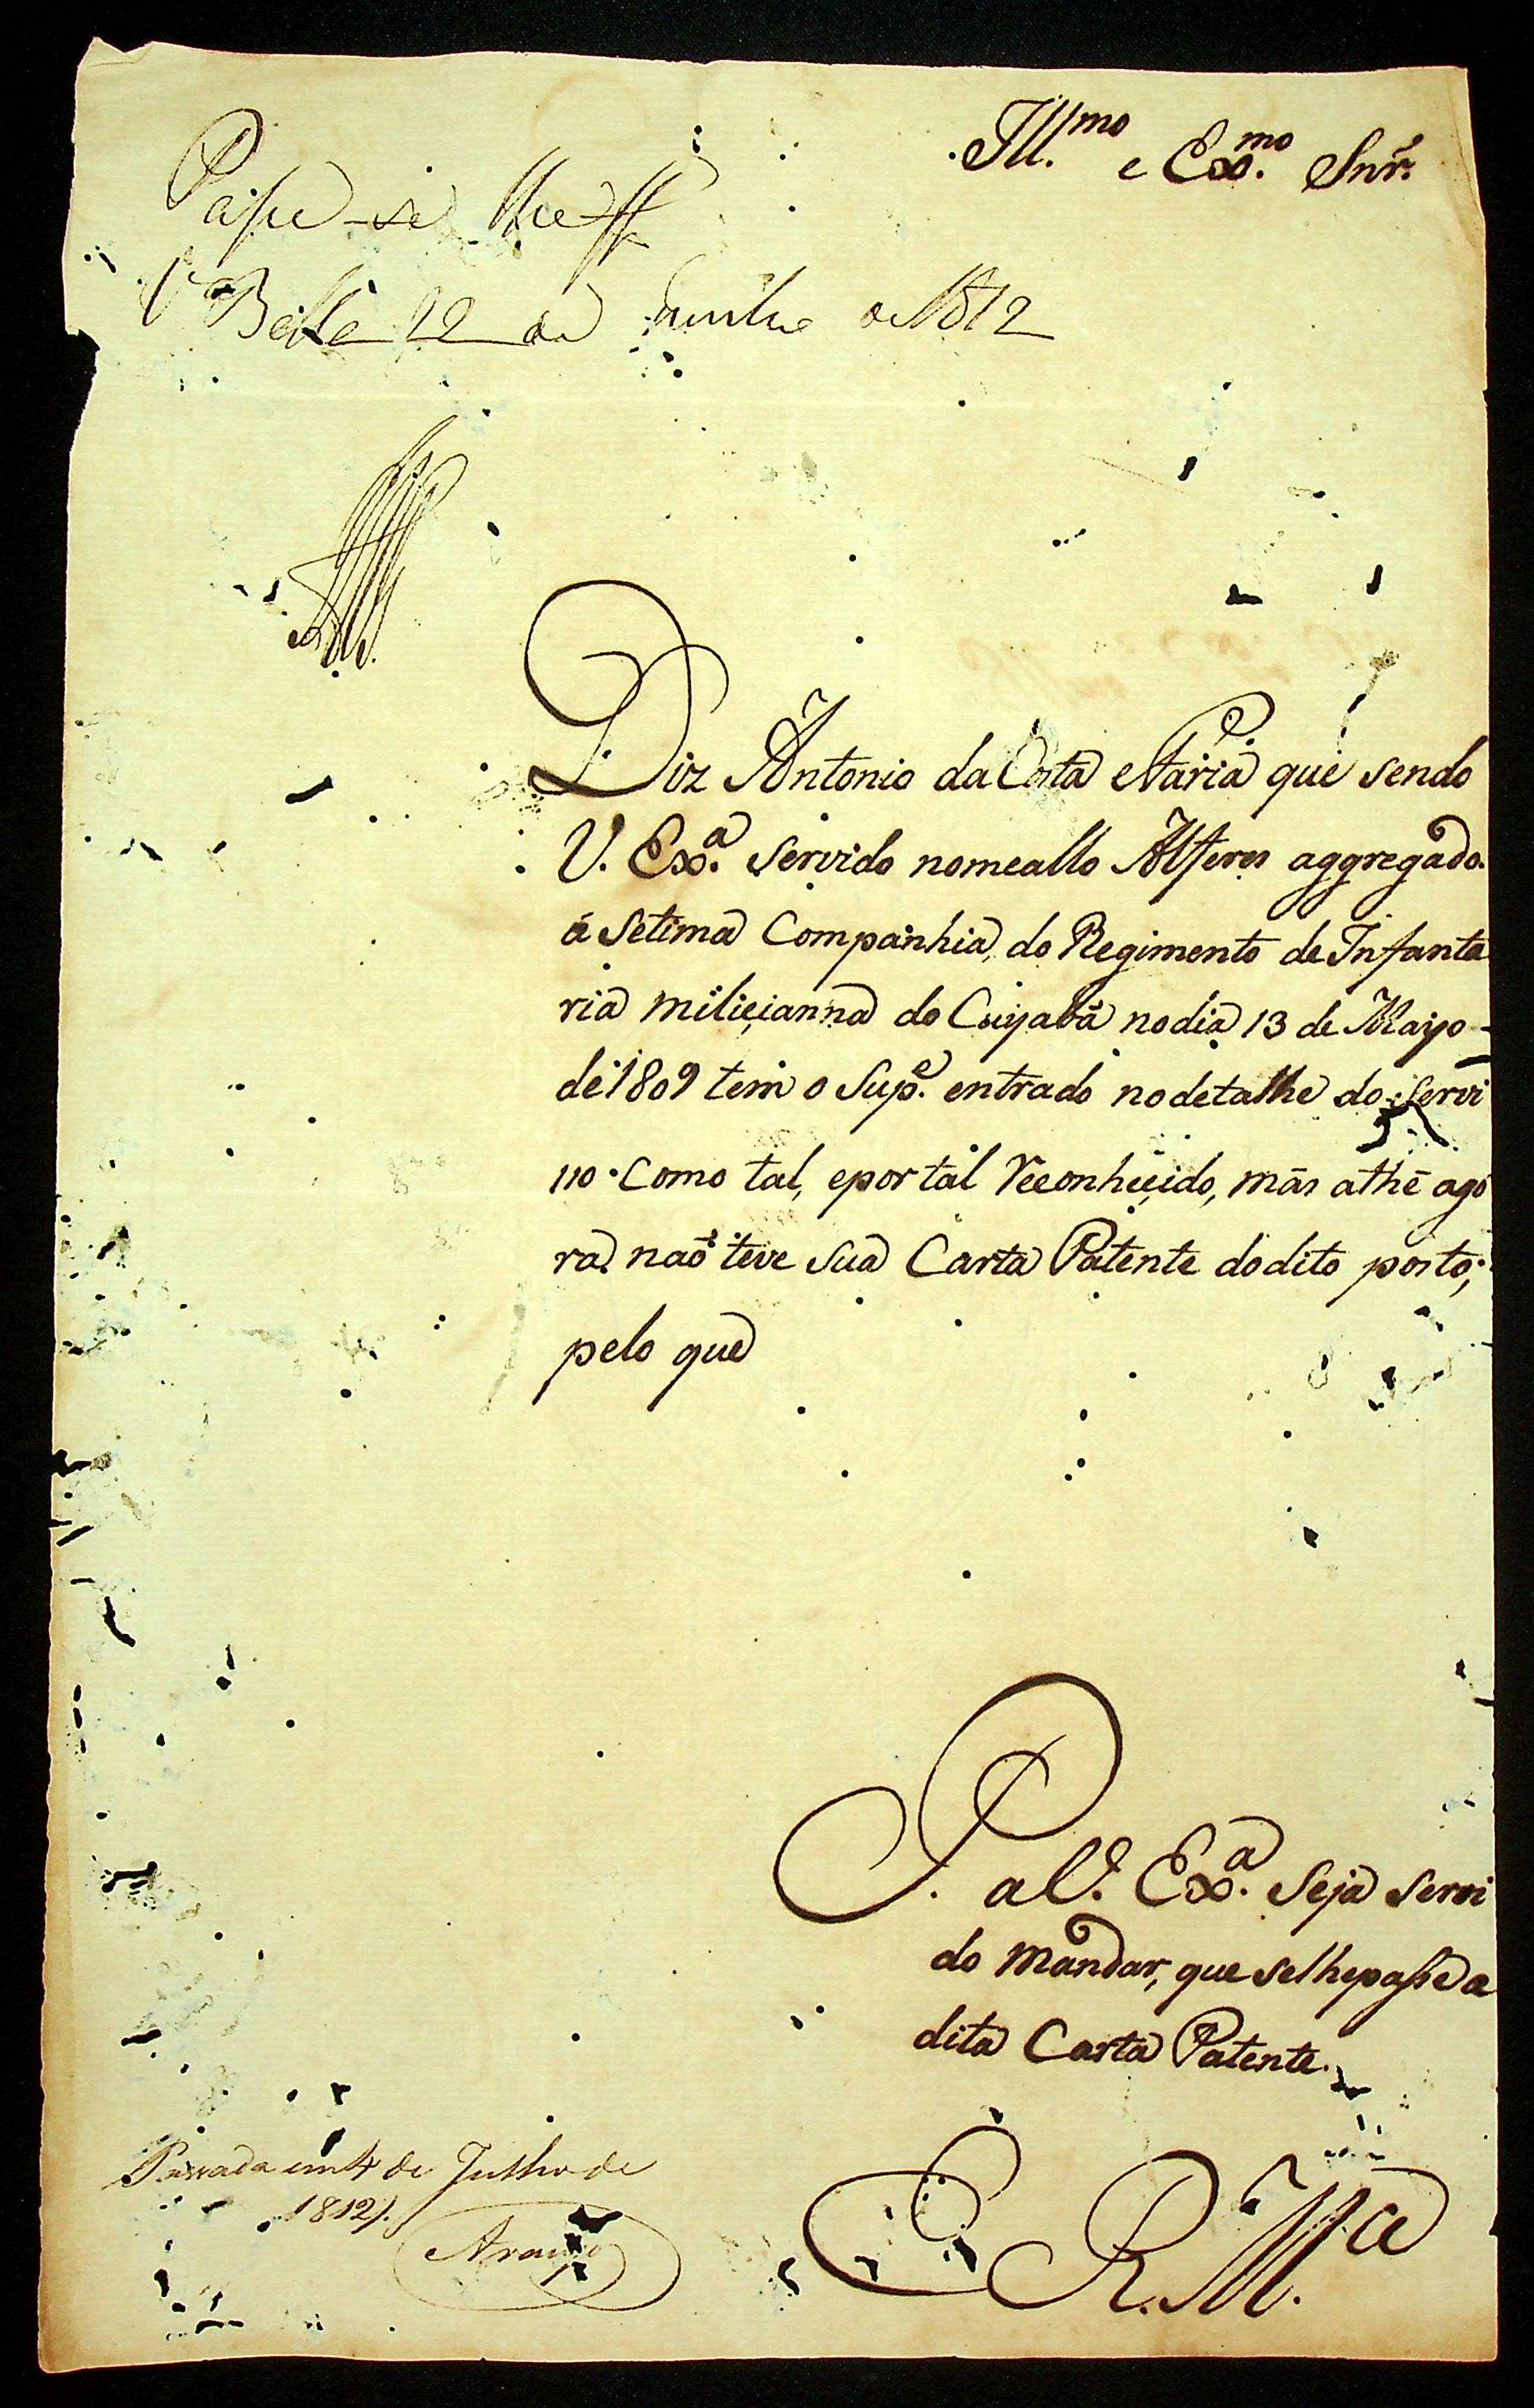 Ill.mo e Exmo. Snr.
Pase-se lhe
Va Bella 22 de Junho de 1812
Diz Antonio da Costa e Faria que sendo
V. Exa. servido nomeallo Alferes aggregado
á Setima Companhia do Regimento de Infanta
ria milicianna do Cuyabá no dia 13 de Mayo
de 1809 tem o Supe. entrado no detalhe do servi
ço como tal, e por tal reconhecido, mas athé ago
ra naõ teve sua Carta Patente do dito posto;
pelo que
P. a V. Exa. Seja servi
do mandar, que se lhe passe a
dita Carta Patente.
Passada em 4 de Julho de
1812.
Araujo
E. R. M.ce